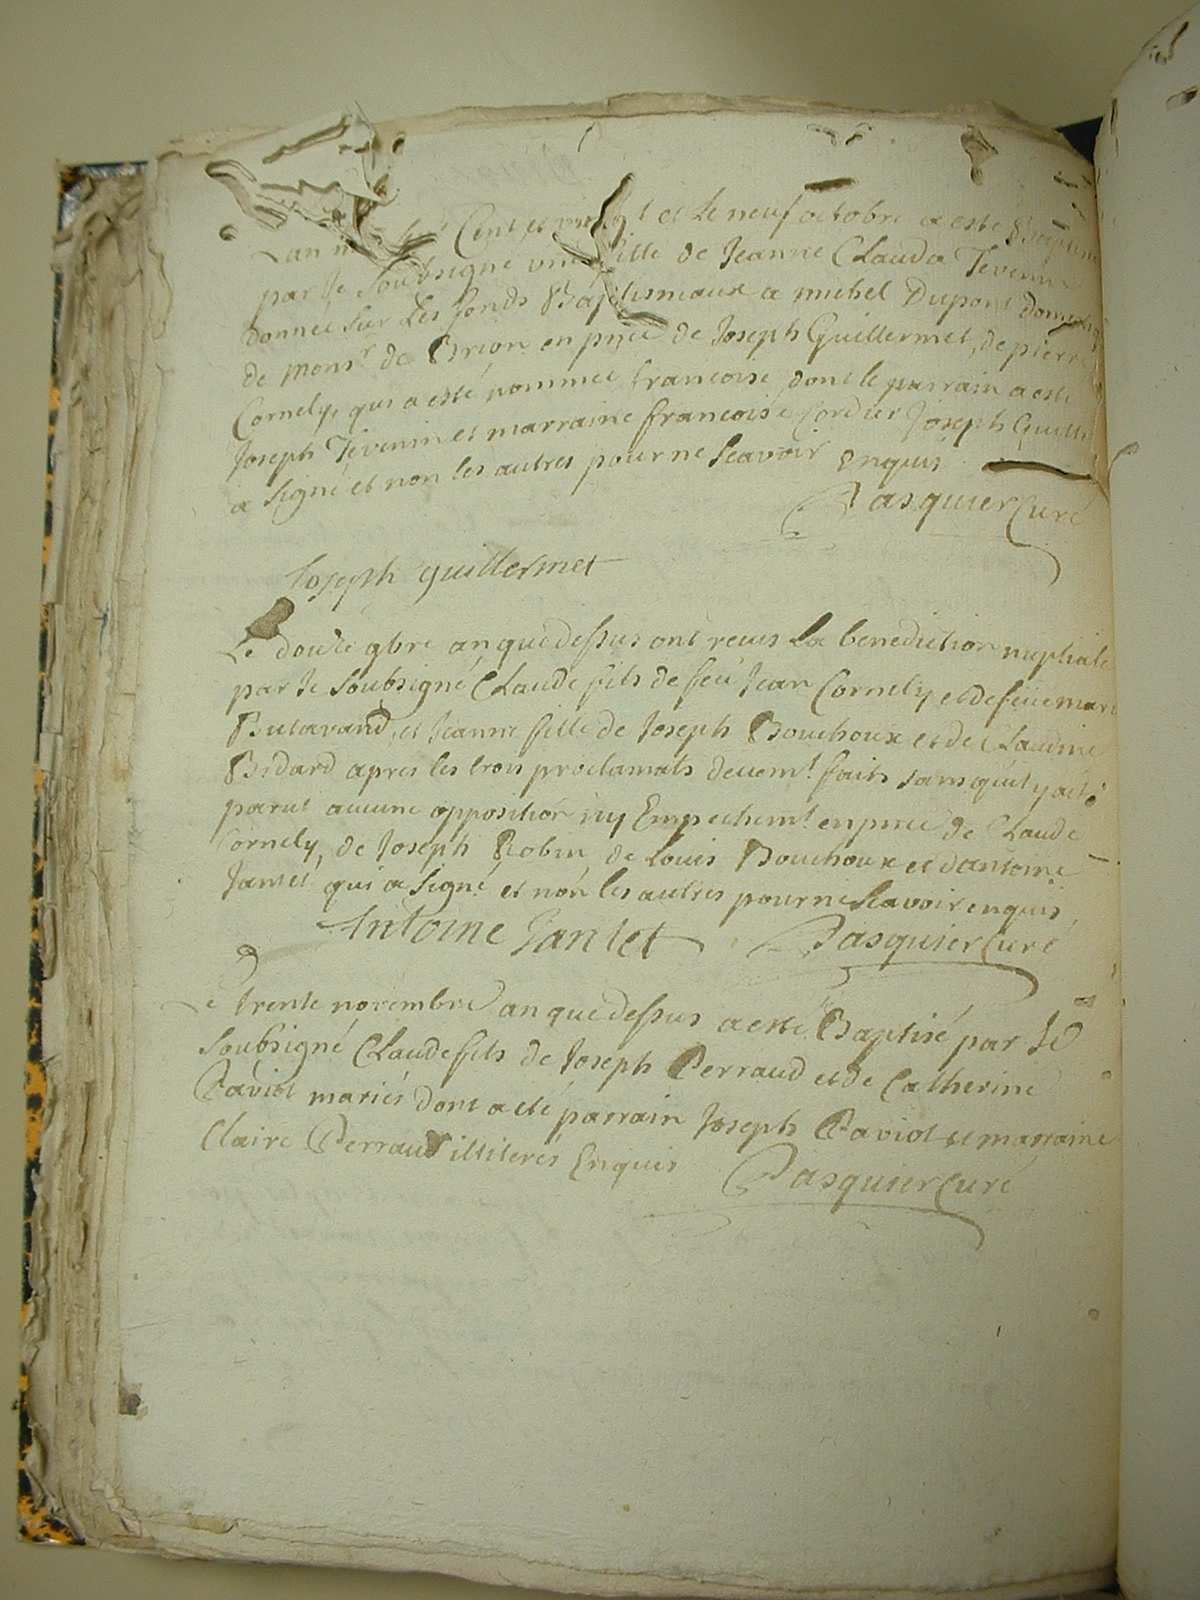 Lan Cent et vingt et Le neuf octobre a esté Baptisée
par Je Soubsigné une fille de Jeanne Clauda Tevenin
donnee sur Les fonds Baptismeaux a michel Dupont domestiq
de Monsr de Brion en pnce de Joseph Guillermet, de pierre
Cornely, qui a esté nommee francoise dont le parrain a esté
Joseph Tevenin et marraine francoise Cordier Joseph Guille
a signé et non les autres pour ne Scavoir Enquis
Pasquier Curé
Joseph guillermet
Le douze 9bre an que dessus ont recus La benediction nuptiale
par Je Soubsigné Claude fils de feu Jean Cornely et de feüe marie
Butavand, et Jeanne fille de Joseph Bouchoux et de Claudine
Bidard apres les trois proclamats deuemt faits sans quil y ait
parut aucune opposition ny Empechemt en pnce de Claude
Cornely, de Joseph Robin de Louis Bouchoux et dantoine
Jantet qui a Signé et non les autres pour ne Scavoir enquis
Antoine Jantet Pasquier Curé
Le trente novembre an que dessus a esté Baptisé par Je
Soubsigné Claude fils de Joseph Perraud et de Catherine
Paviot mariés dont a eté parrain Joseph Paviot et marraine
Claire Perraud illiterés Enquis Pasquier Curé